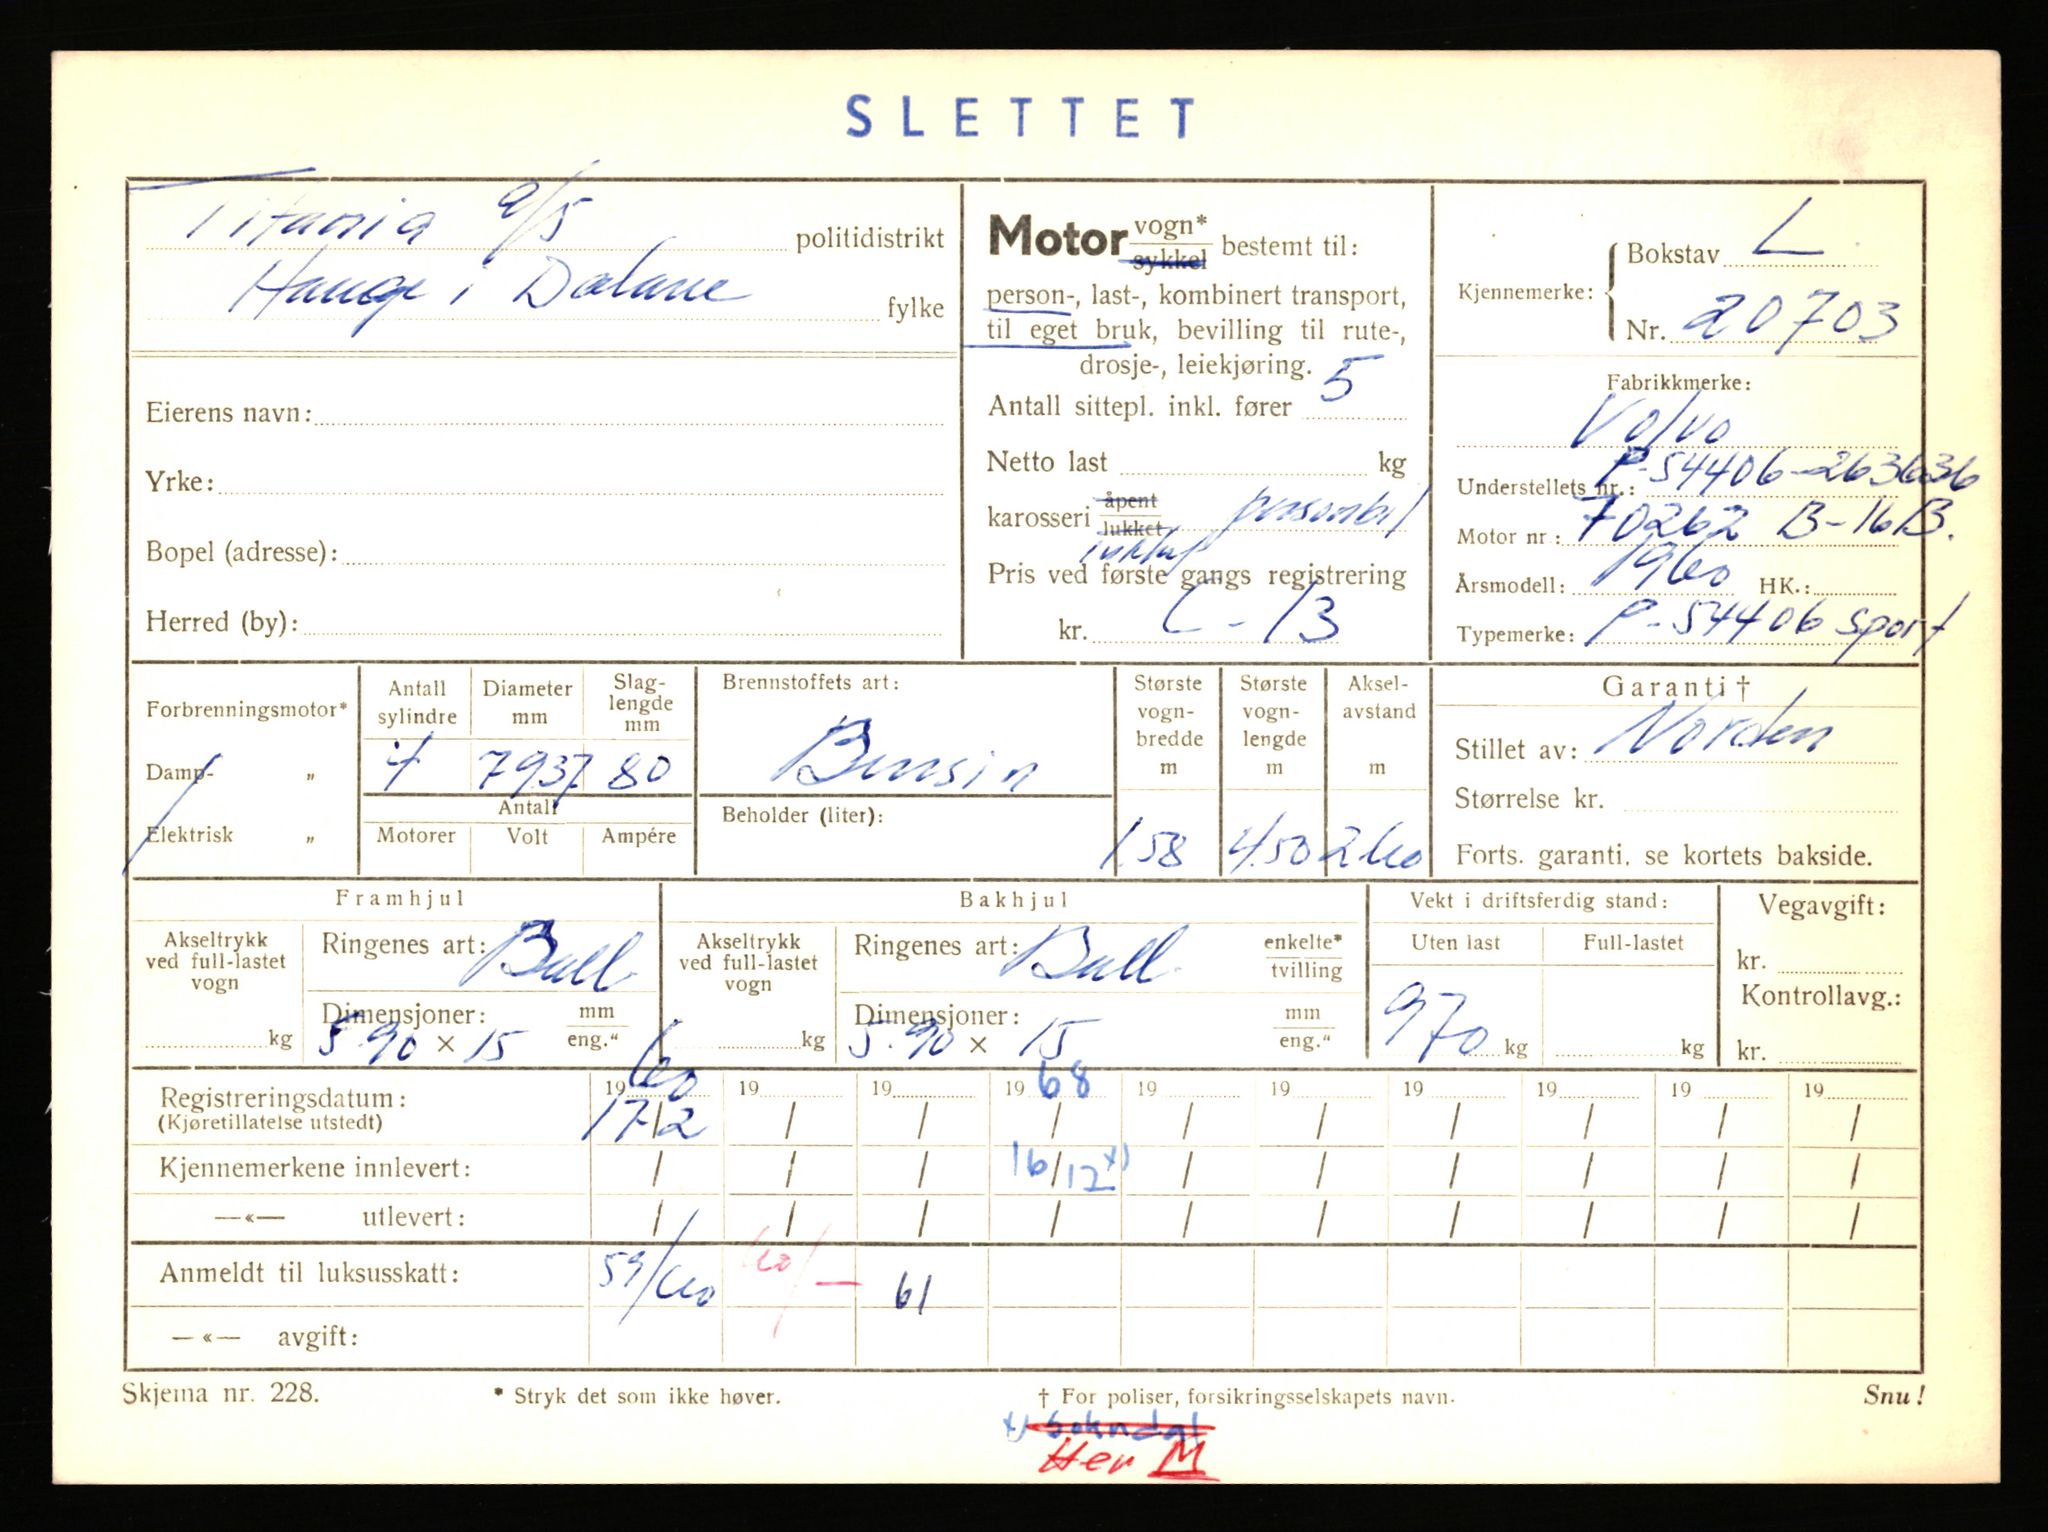 SLETTET
Titania a/s politidistrikt
Hauge i Dalane fylke
Eierens navn:
Yrke:
Bopel (adresse):
Herred (by):
Motor vogn* sykkel bestemt til:
person-, last-, kombinert transport,
til eget bruk, bevilling til rute-,
drosje-, leiekjøring.
Antall sittepl. inkl. fører 5
Netto last kg
karosseri åpent lukket personbil
lukket
Pris ved første gangs registrering
kr. C-13
Kjennemerke: Bokstav L
Nr. 20703
Fabrikkmerke:
Volvo
Understellets nr.: P-54406-263636
Motor nr: 70262 B-16B.
Årsmodell: 1960 HK.:
Typemerke: P-54406 Sport
Forbrenningsmotor*
Damp- „
Elektrisk „
Antall sylindre 4
Diameter mm 7937
Slag-lengde mm 80
Antall
Motorer Volt Ampére
Brennstoffets art:
Bensin
Beholder (liter):
Største vogn-bredde m 1.58
Største vogn-lengde m 4.50
Aksel-avstand m 260
Garanti †
Stillet av: Norden
Størrelse kr.
Forts. garanti. se kortets bakside.
Framhjul
Akseltrykk ved full-lastet vogn
kg
Ringenes art: Ball.
Dimensjoner: mm
5.90 × 15 eng."
Bakhjul
Akseltrykk ved full-lastet vogn
kg
Ringenes art: Ball. enkelte* tvilling
Dimensjoner: mm
5.90 × 15 eng."
Vekt i driftsferdig stand:
Uten last Full-lastet
970 kg kg
Vegavgift:
kr.
Kontrollavg.:
kr.
19 60 19 19 19 68 19 19 19 19 19 19
Registreringsdatum: 17/2 / / / / / / / / /
(Kjøretillatelse utstedt)
Kjennemerkene innlevert: / / / 16/12 x) / / / / / /
—«— utlevert: / / / / / / / / / /
Anmeldt til luksusskatt: 59/60 60/— 61
—«— avgift:
Skjema nr. 228. * Stryk det som ikke høver. † For poliser, forsikringsselskapets navn. Snu!
x) Sokndal
Her M